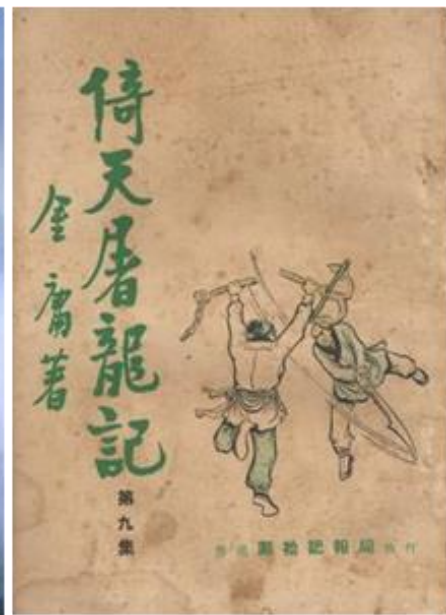 倚天屠龍記
金庸著
第九集
香港鄺拾記報局發行